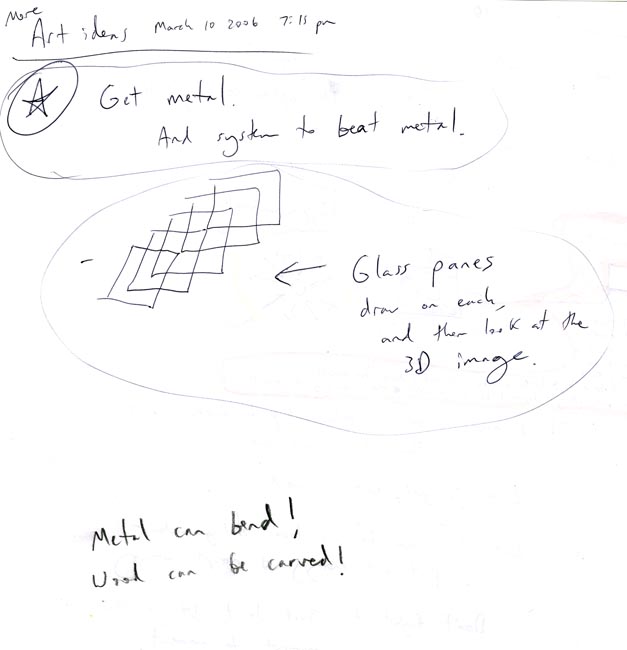 More
Art ideas March 10 2006 7:15 pm
Get metal.
And system to beat metal.
Glass panes
draw on each,
and then look at the
3D image.
Metal can bend!
Wood can be carved!